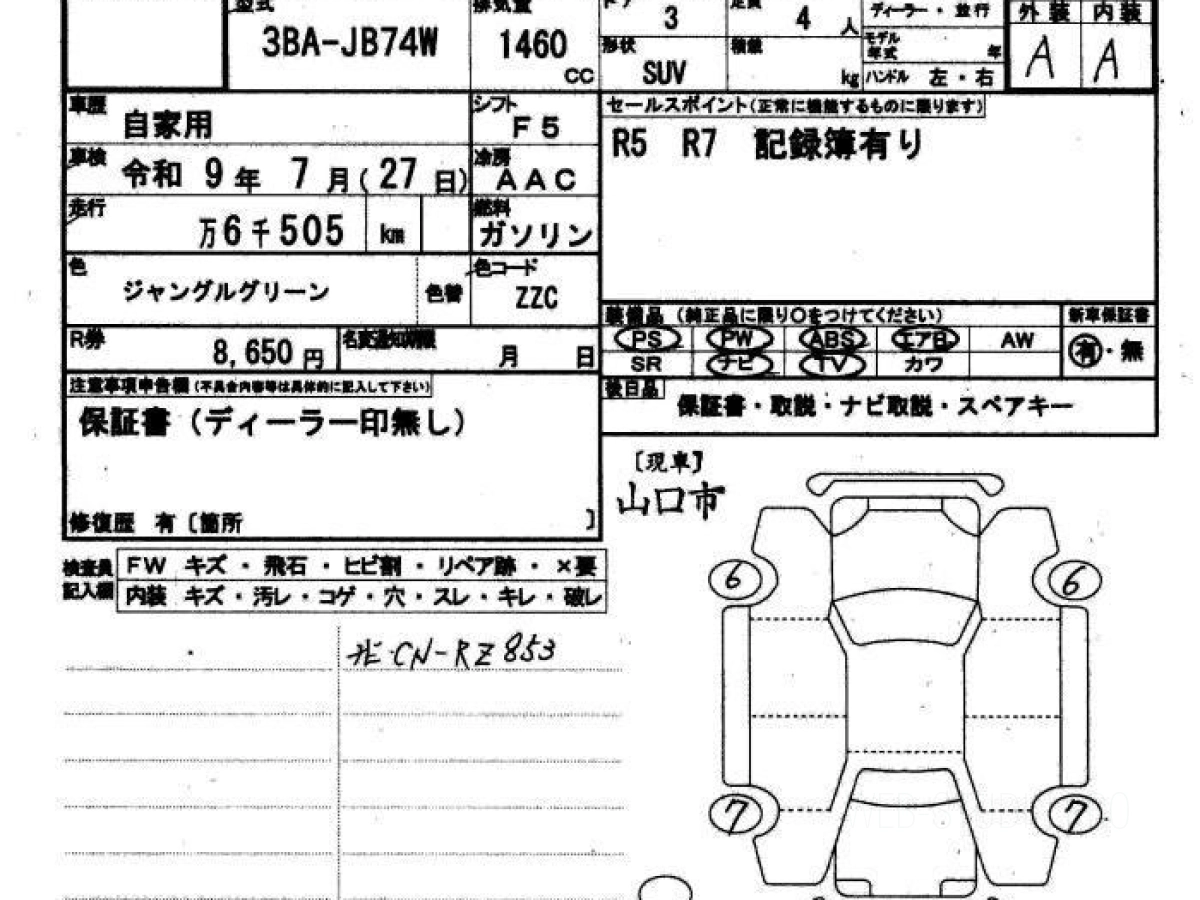 型式 排気量 ドア 定員 ディーラー・並行 外装 内装
3BA-JB74W 1460 cc 3 4 人 モデル年式 年 A A
形状 SUV 積載 kg ハンドル 左・右
車歴 自家用 シフト F5 セールスポイント(正常に機能するものに限ります)
車検 令和 9年 7月(27日) 冷房 AAC R5 R7 記録簿有り
走行 万6千505 km 燃料 ガソリン
色 ジャングルグリーン 色替 色コード ZZC
装備品 (純正品に限り〇をつけてください) 新車保証書
R券 8,650円 名変通知期限 月 日 PS PW ABS エアB AW 有・無
SR ナビ TV カワ
注意事項申告欄(不具合内容等は具体的に記入して下さい) 後日品 保証書・取説・ナビ取説・スペアキー
保証書(ディーラー印無し)
[現車]
山口市
修復歴 有[箇所 ]
検査員記入欄 FW キズ・飛石・ヒビ割・リペア跡・×要
内装 キズ・汚レ・コゲ・穴・スレ・キレ・破レ
6 6
CN-RZ853
7 7